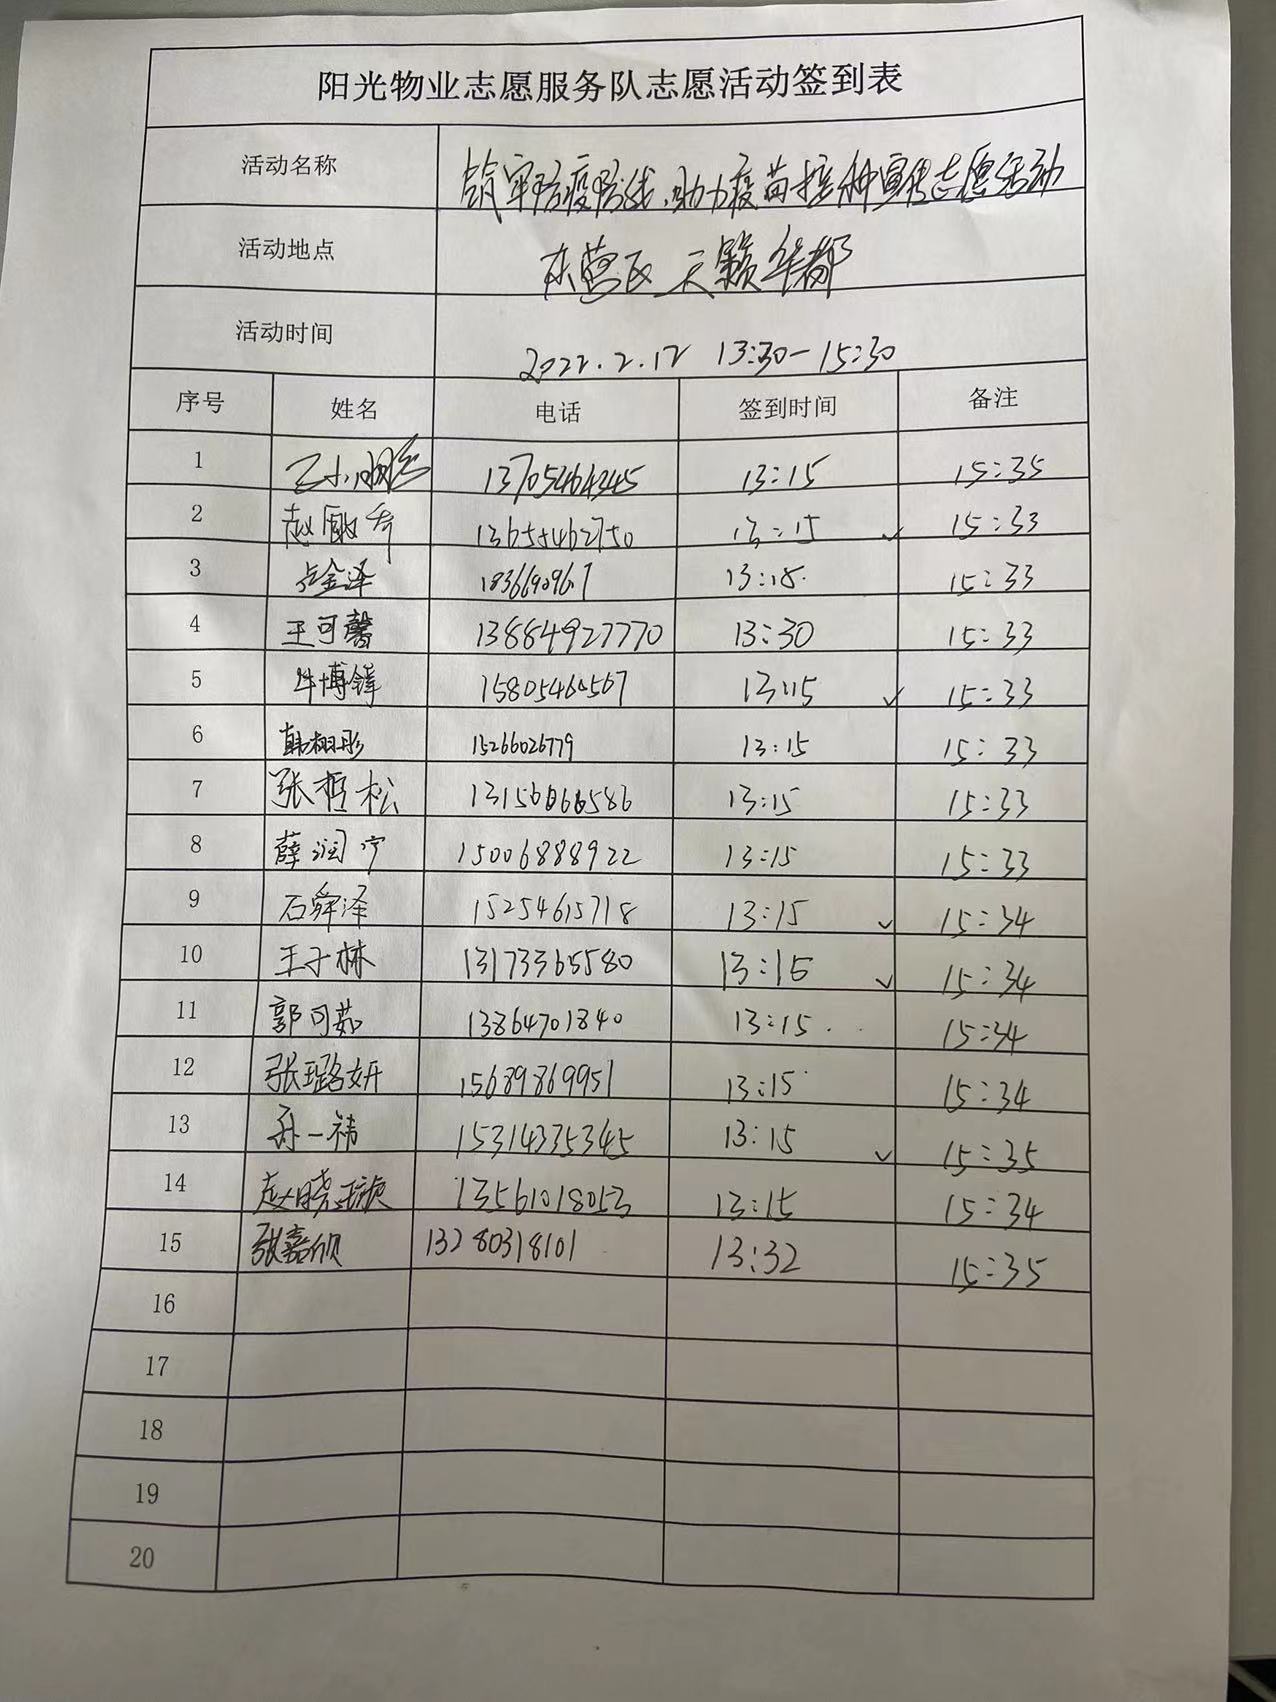 阳光物业志愿服务队志愿活动签到表
活动名称 筑牢防疫防线,助力疫苗接种宣传志愿活动
活动地点 东营区天籁华都
活动时间 2022.2.12 13:30-15:30
序号 姓名 电话 签到时间 备注
1 13705464345 13:15 15:35
2 13655462750 13:15 ✓ 15:33
3 金泽 1836690967 13:15. 15:33
4 王可馨 13884927770 13:30 15:33
5 牛博锋 15805460567 13:15 ✓ 15:33
6 韩栩彤 15266026779 13:15 15:33
7 张哲松 13156066586 13:15 15:33
8 薛润宁 15006888922 13:15 15:33
9 石舜泽 15254615718 13:15 ✓ 15:34
10 王子林 13173365580 13:15 ✓ 15:34
11 郭可茹 13864701840 13:15 15:34
12 张璐妍 15689869951 13:15 15:34
13 孙一祎 15314335345 13:15 ✓ 15:35
14 13561018053 13:15 15:34
15 张嘉欣 13280318101 13:32 15:35
16
17
18
19
20